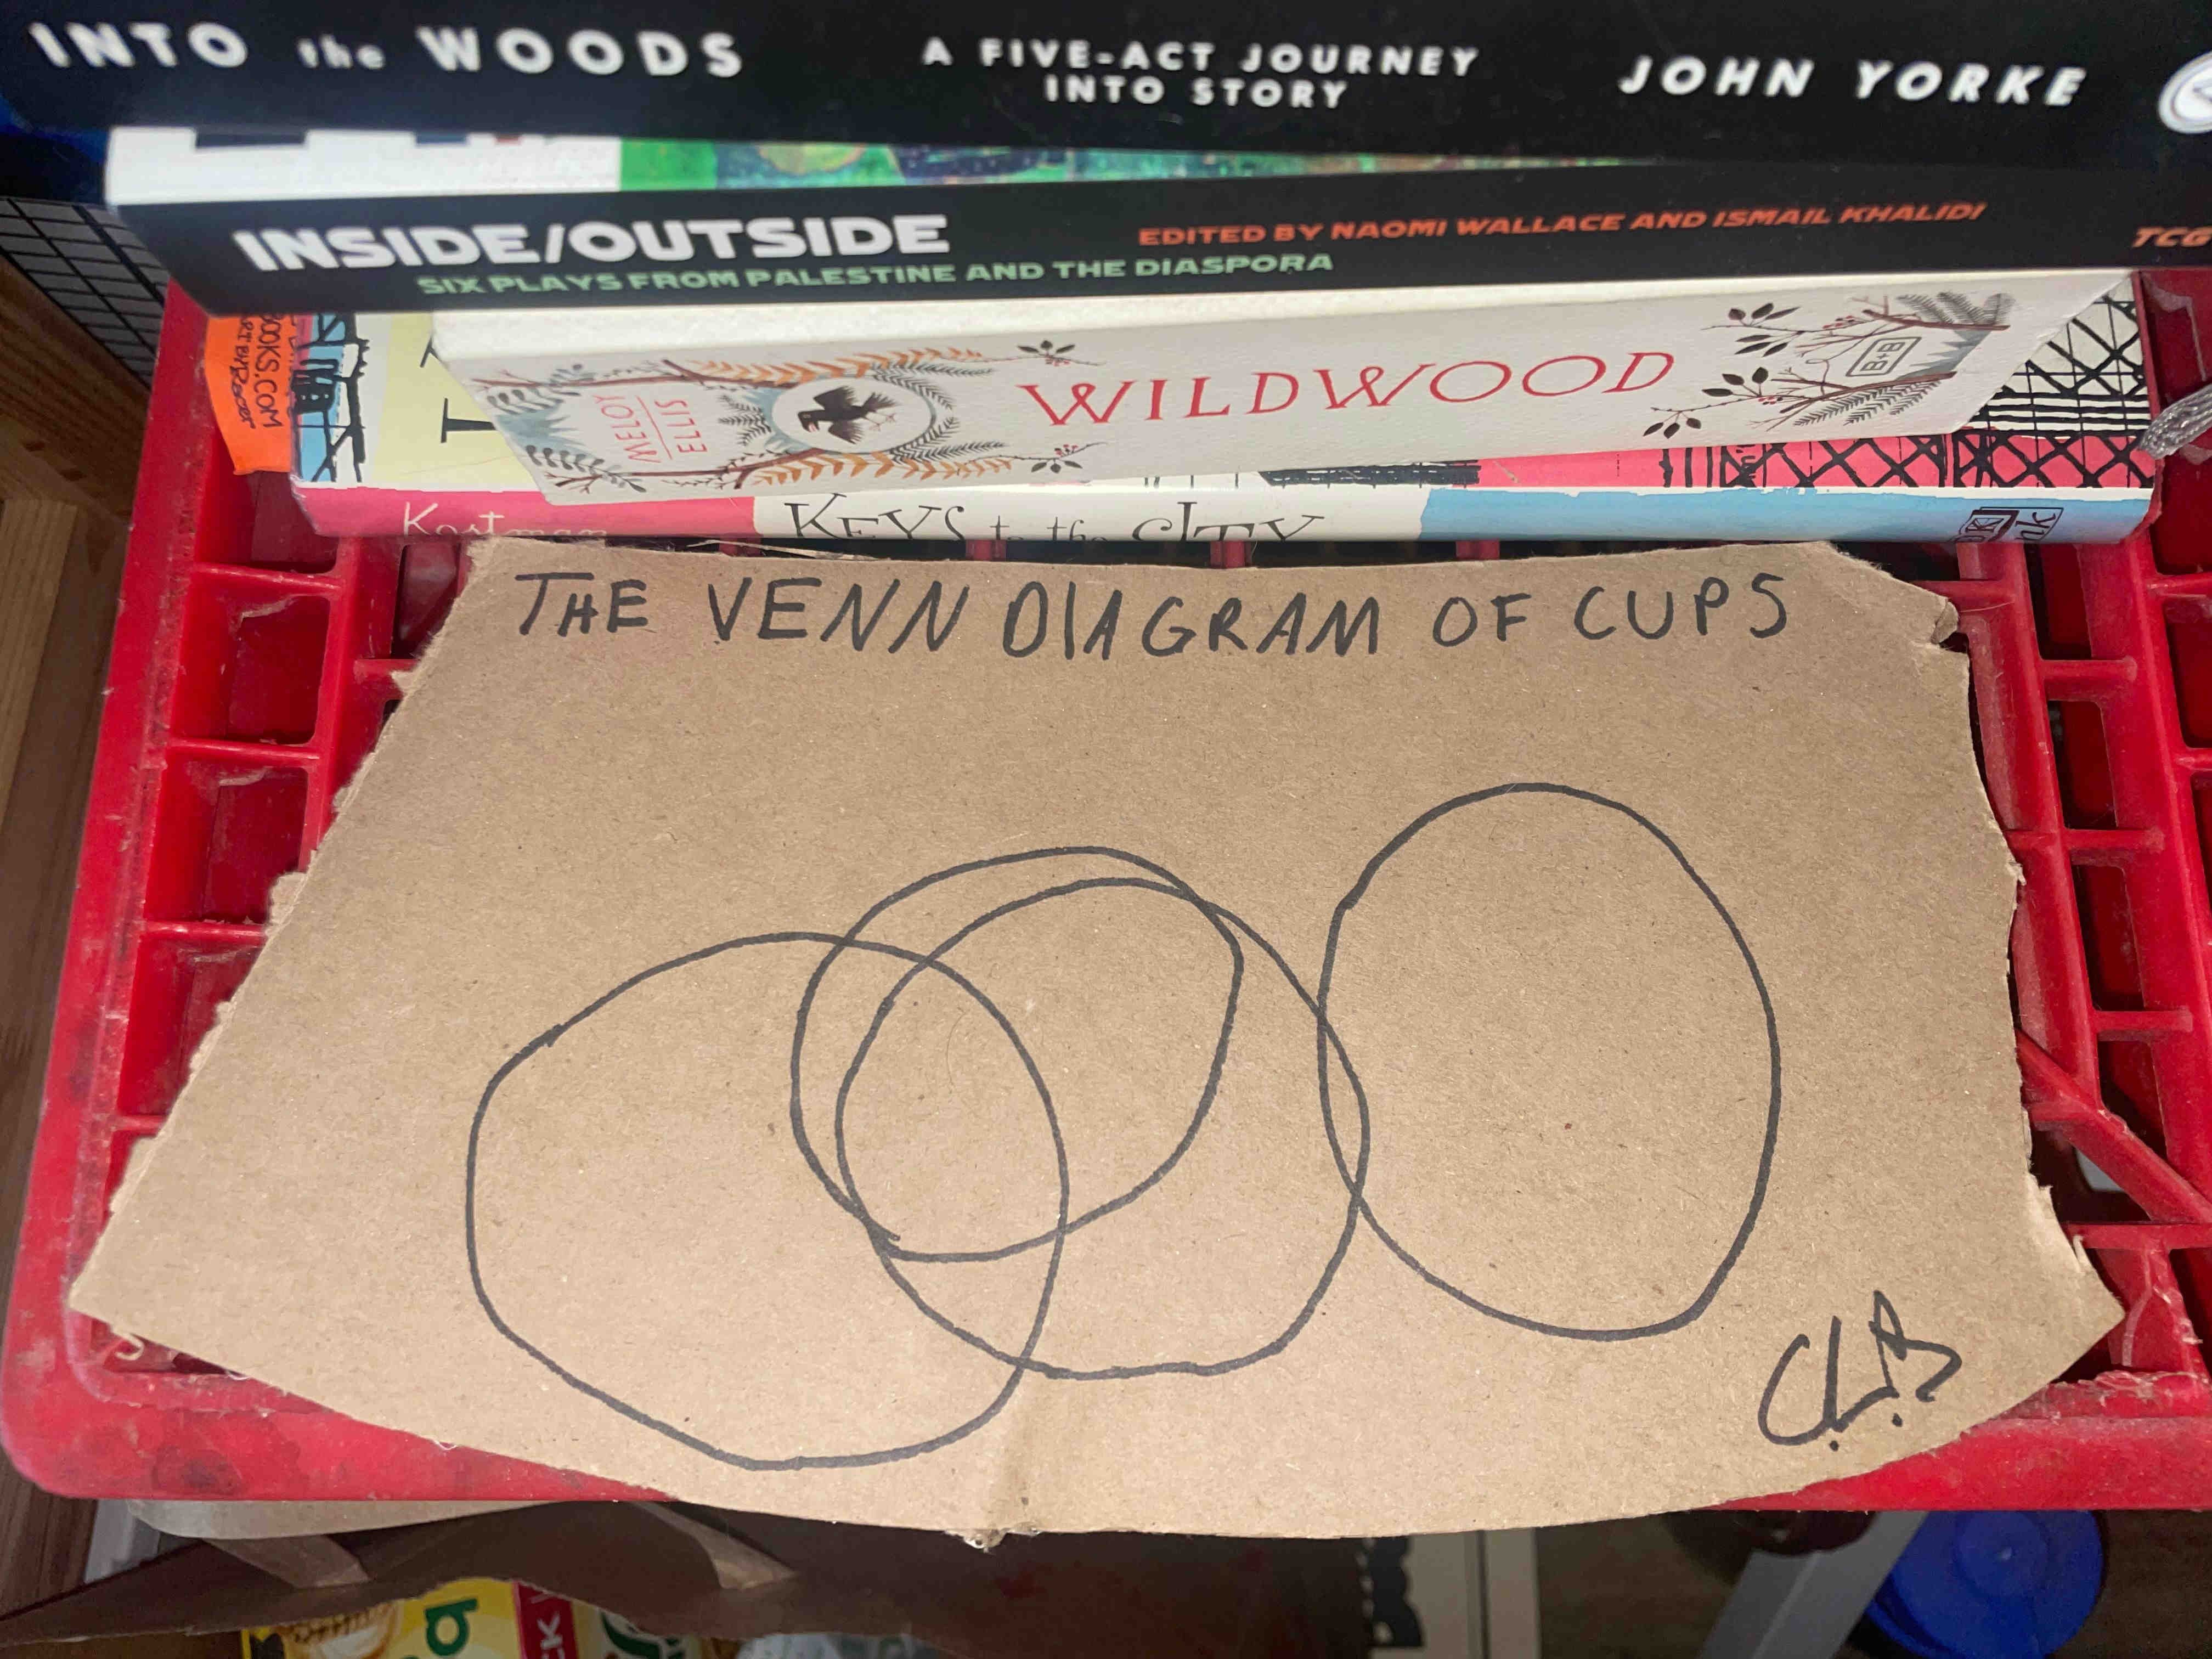 INTO the WOODS
A FIVE-ACT JOURNEY
INTO STORY
JOHN YORKE
INSIDE/OUTSIDE
SIX PLAYS FROM PALESTINE AND THE DIASPORA
EDITED BY NAOMI WALLACE AND ISMAIL KHALIDI
TCG
BOOKS.COM
MELOY
ELLIS
WILDWOOD
B+B
KEYS to the CITY
THE VENN DIAGRAM OF CUPS
C.L.B